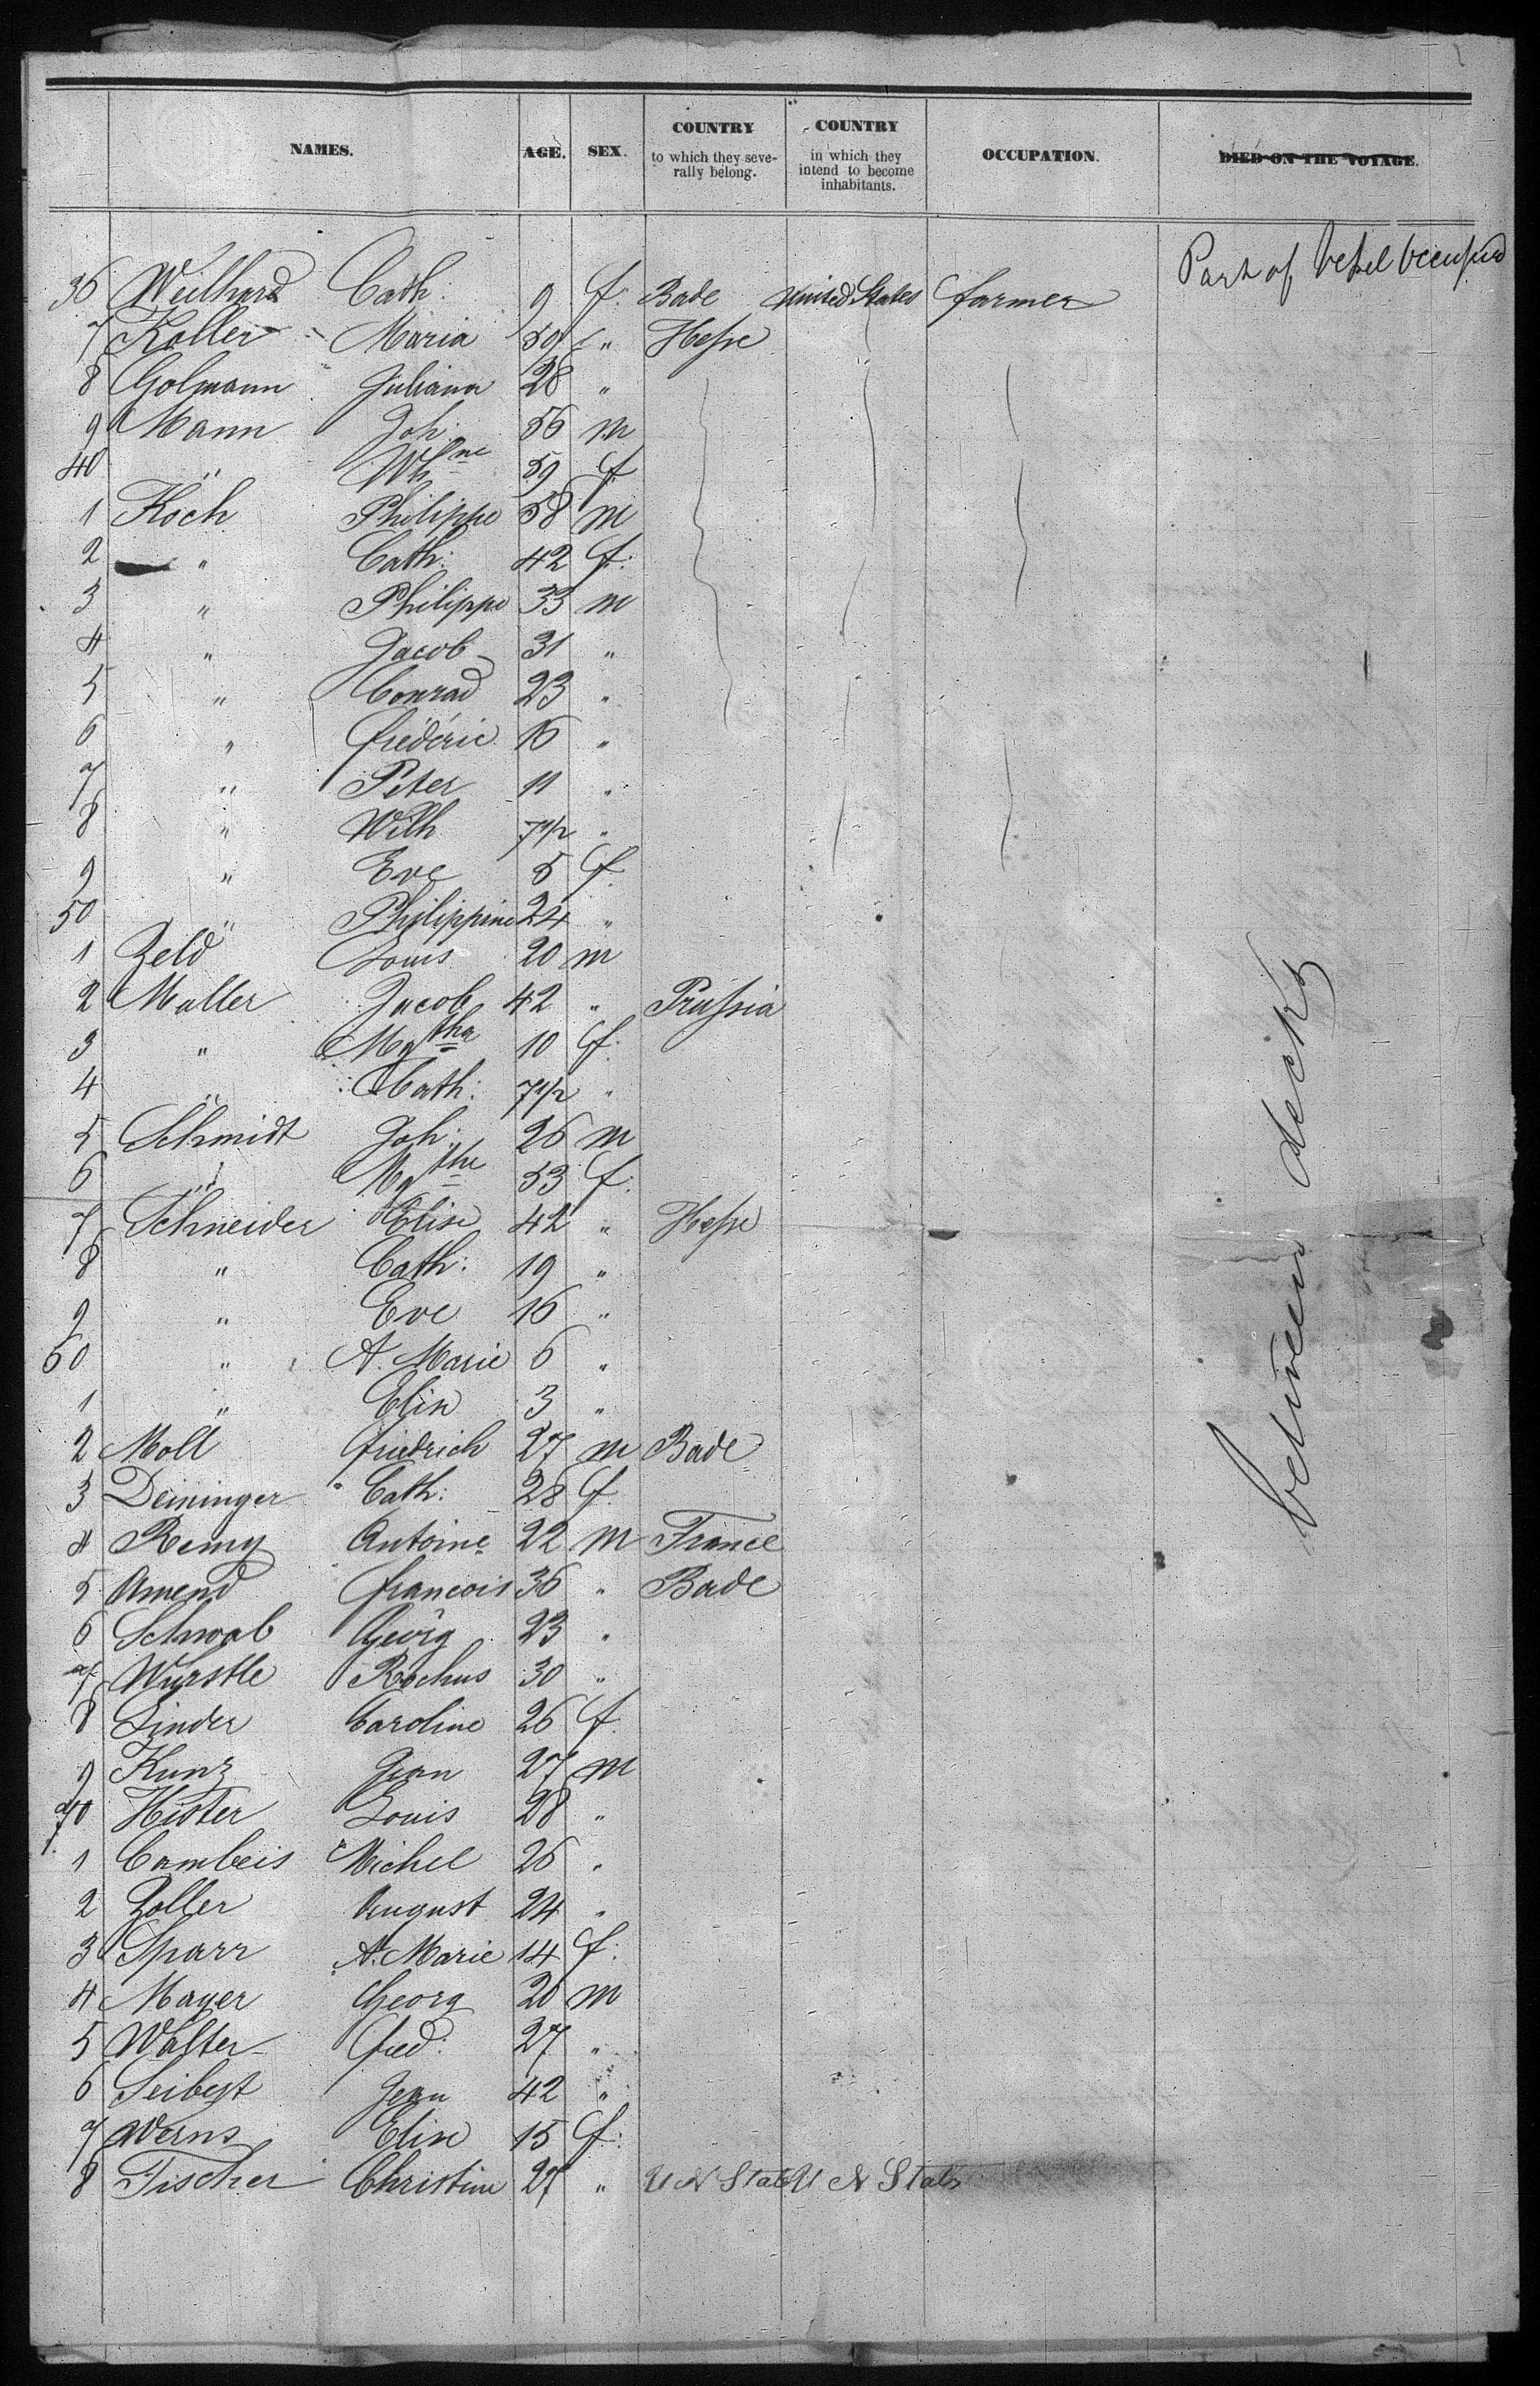 NAMES. AGE. SEX. COUNTRY to which they severally belong. COUNTRY in which they intend to become inhabitants. OCCUPATION. DIED ON THE VOYAGE.
Part of Vessel Occupied
36 Weilhard Cath: 9 f. Bade United States farmer
7 Koller Maria 50 " Hesse
8 Golmann Juliana 28 "
9 Mann Joh: 56 m
40 " Wh ne 59 f
1 Koch Philippe 58 m
2 " Cath: 42 f:
3 " Philippe 33 m
4 " Jacob 31 "
5 " Conrad 23 "
6 " frédéric 16 "
7 " Peter 11 "
8 " Wilh 7 1/2 "
9 " Eve 5 f
50 " Philippine 24 "
1 Zeld Louis 20 m
2 Muller Jacob 42 " Prussia
3 " Mg tha 10 f:
4 " Cath: 7 1/2 "
5 Schmidt Joh: 26 m
6 " Mg the 53 f:
7 Schneider Elise 42 " Hesse
8 " Cath: 19 "
9 " Eve 16 "
60 " A. Marie 6 "
1 " Elise 3 "
2 Moll friedrich 27 m Bade
3 Deininger Cath: 28 f
4 Remy Antoine 22 m France
5 Amend francois 36 " Bade
6 Schwab Georg 23 "
7 Wurstle Rochus 30 "
8 Linder Caroline 26 f
9 Kunz Jean 27 m
70 Hister Louis 28 "
1 Cambeis Michel 26 "
2 Zoller August 24 "
3 Sparr A. Marie 14 f:
4 Mayer Georg 20 m
5 Walter fred: 27 "
6 Seibert Jean 42 "
7 Werns Elise 15 f:
8 Fischer Christine 27 " U N State U N States
between decks